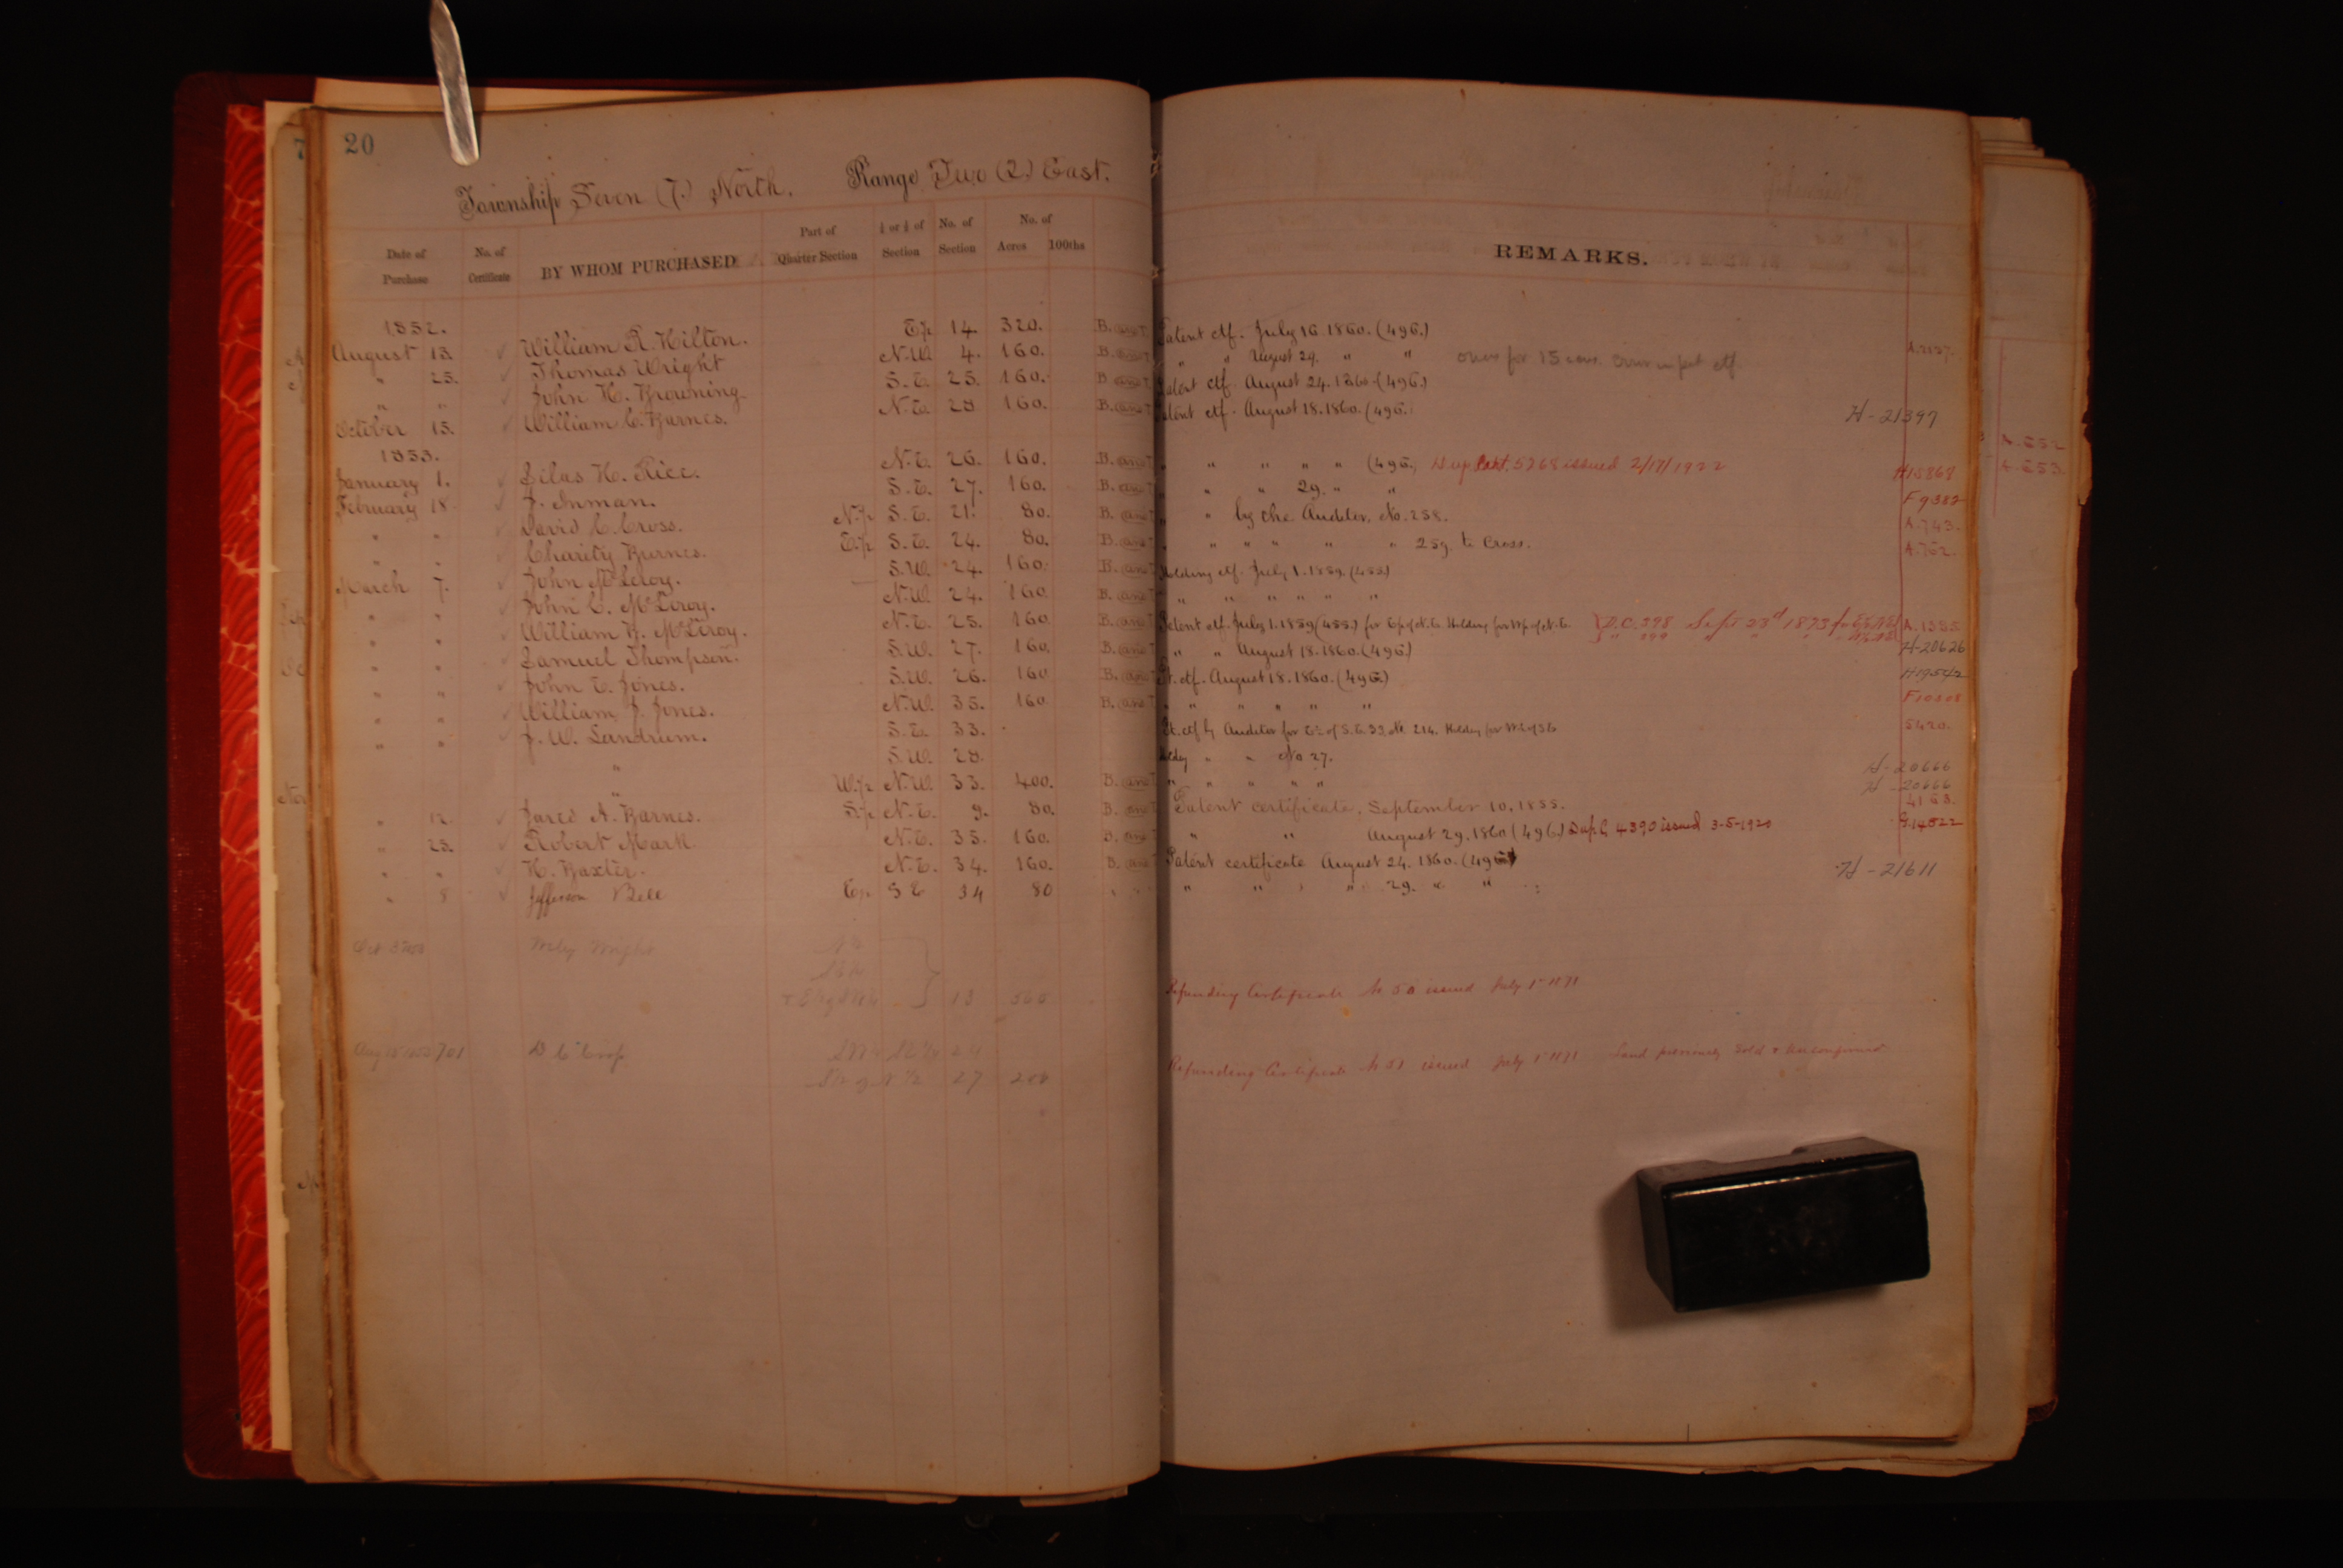 20
Township Seven (7.) North. Range Two (2.) East.
Date of Purchase No. of Certificate BY WHOM PURCHASED Part of Quarter Section ¼ or ½ of Section No. of Section No. of Acres 100ths REMARKS.
1852.
August 13. William R. Hilton. E½ 14. 320. B. and T Patent ctf. July 16. 1860. (496.)
" 25. Thomas Wright N.W. 4. 160. B. and T " " August 29. " " A.2127.
" " John H. Browning S.E. 25. 160. B. and T Patent ctf. August 24. 1860. (496.)
October 15. William C. Barnes. N.E. 28 160. B. and T Patent ctf. August 18. 1860. (496. H-21397
1853.
January 1. Silas H. Rice. N.E. 26. 160. B. and T " " " " " (496. Dup. Cert. 5768 issued 2/17/1922 H15868
February 18. J. Inman. S.E. 27. 160. B. and T " " " 29. " " F9382
" " David C. Cross. N.½ S.E. 21. 80. B. and T " " by the Auditor. No. 258. A.743.
" " Charity Barnes. E.½ S.E. 24. 80. B. and T " " " " " " 259. to Cross. A.762.
March 7. John McLeroy. S.W. 24. 160. B. and T Holding ctf. July 1. 1859. (455)
" " John C. McLeroy. N.W. 24. 160. B. and T " " " " " "
" " William B. McLeroy. N.E. 25. 160. B. and T Patent ctf. July 1. 1859 (455.) for E½ of N.E. Holding for W½ of N.E. D.C. 398 Sept 23d 1873 for A.1385
" " Samuel Thompson. S.W. 27. 160. B. and T " " August 18. 1860. (496) H-20626
" " John E. Jones. S.W. 26. 160 B. and T Pt. ctf. August 18. 1860. (496.) H19542
" " William J. Jones. N.W. 35. 160 B. and T " " " " " " F10308
" " J. W. Landrum. S.E. 33. Pt. ctf by Auditor for E½ of S.E. 33. No. 214. Holding for 5420.
" S.W. 28. Holdg " " No 27. H-20666
" W.½ N.W. 33. 400. B. and T " " " " " H-20666
" 12. Jared A. Barnes. S.½ N.E. 9. 80. B. and T Patent certificate, September 10. 1855. 4163.
" 25. Robert Mark. N.E. 35. 160. B. and T " " August 29. 1860 (496.) Dup C 4390 issued 3-5-1920 G.14822
" " H. Baxter. N.E. 34. 160. B. and T Patent certificate August 24. 1860. (496) H-21611
" 8 Jefferson Bell E½ S E 34 80 " " " " " 29. " "
Wright
13 560 Refunding Certificate No 50 issued July 1st 1871
701 D C 24
27 200 Refunding Certificate No 51 issued July 1st 1871 Land previously Sold & Unconfirmed